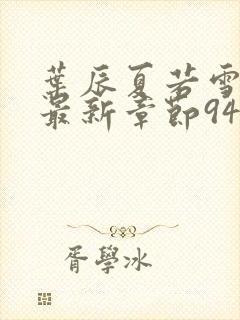 葉辰夏若雪
最新章節94
胥學冰